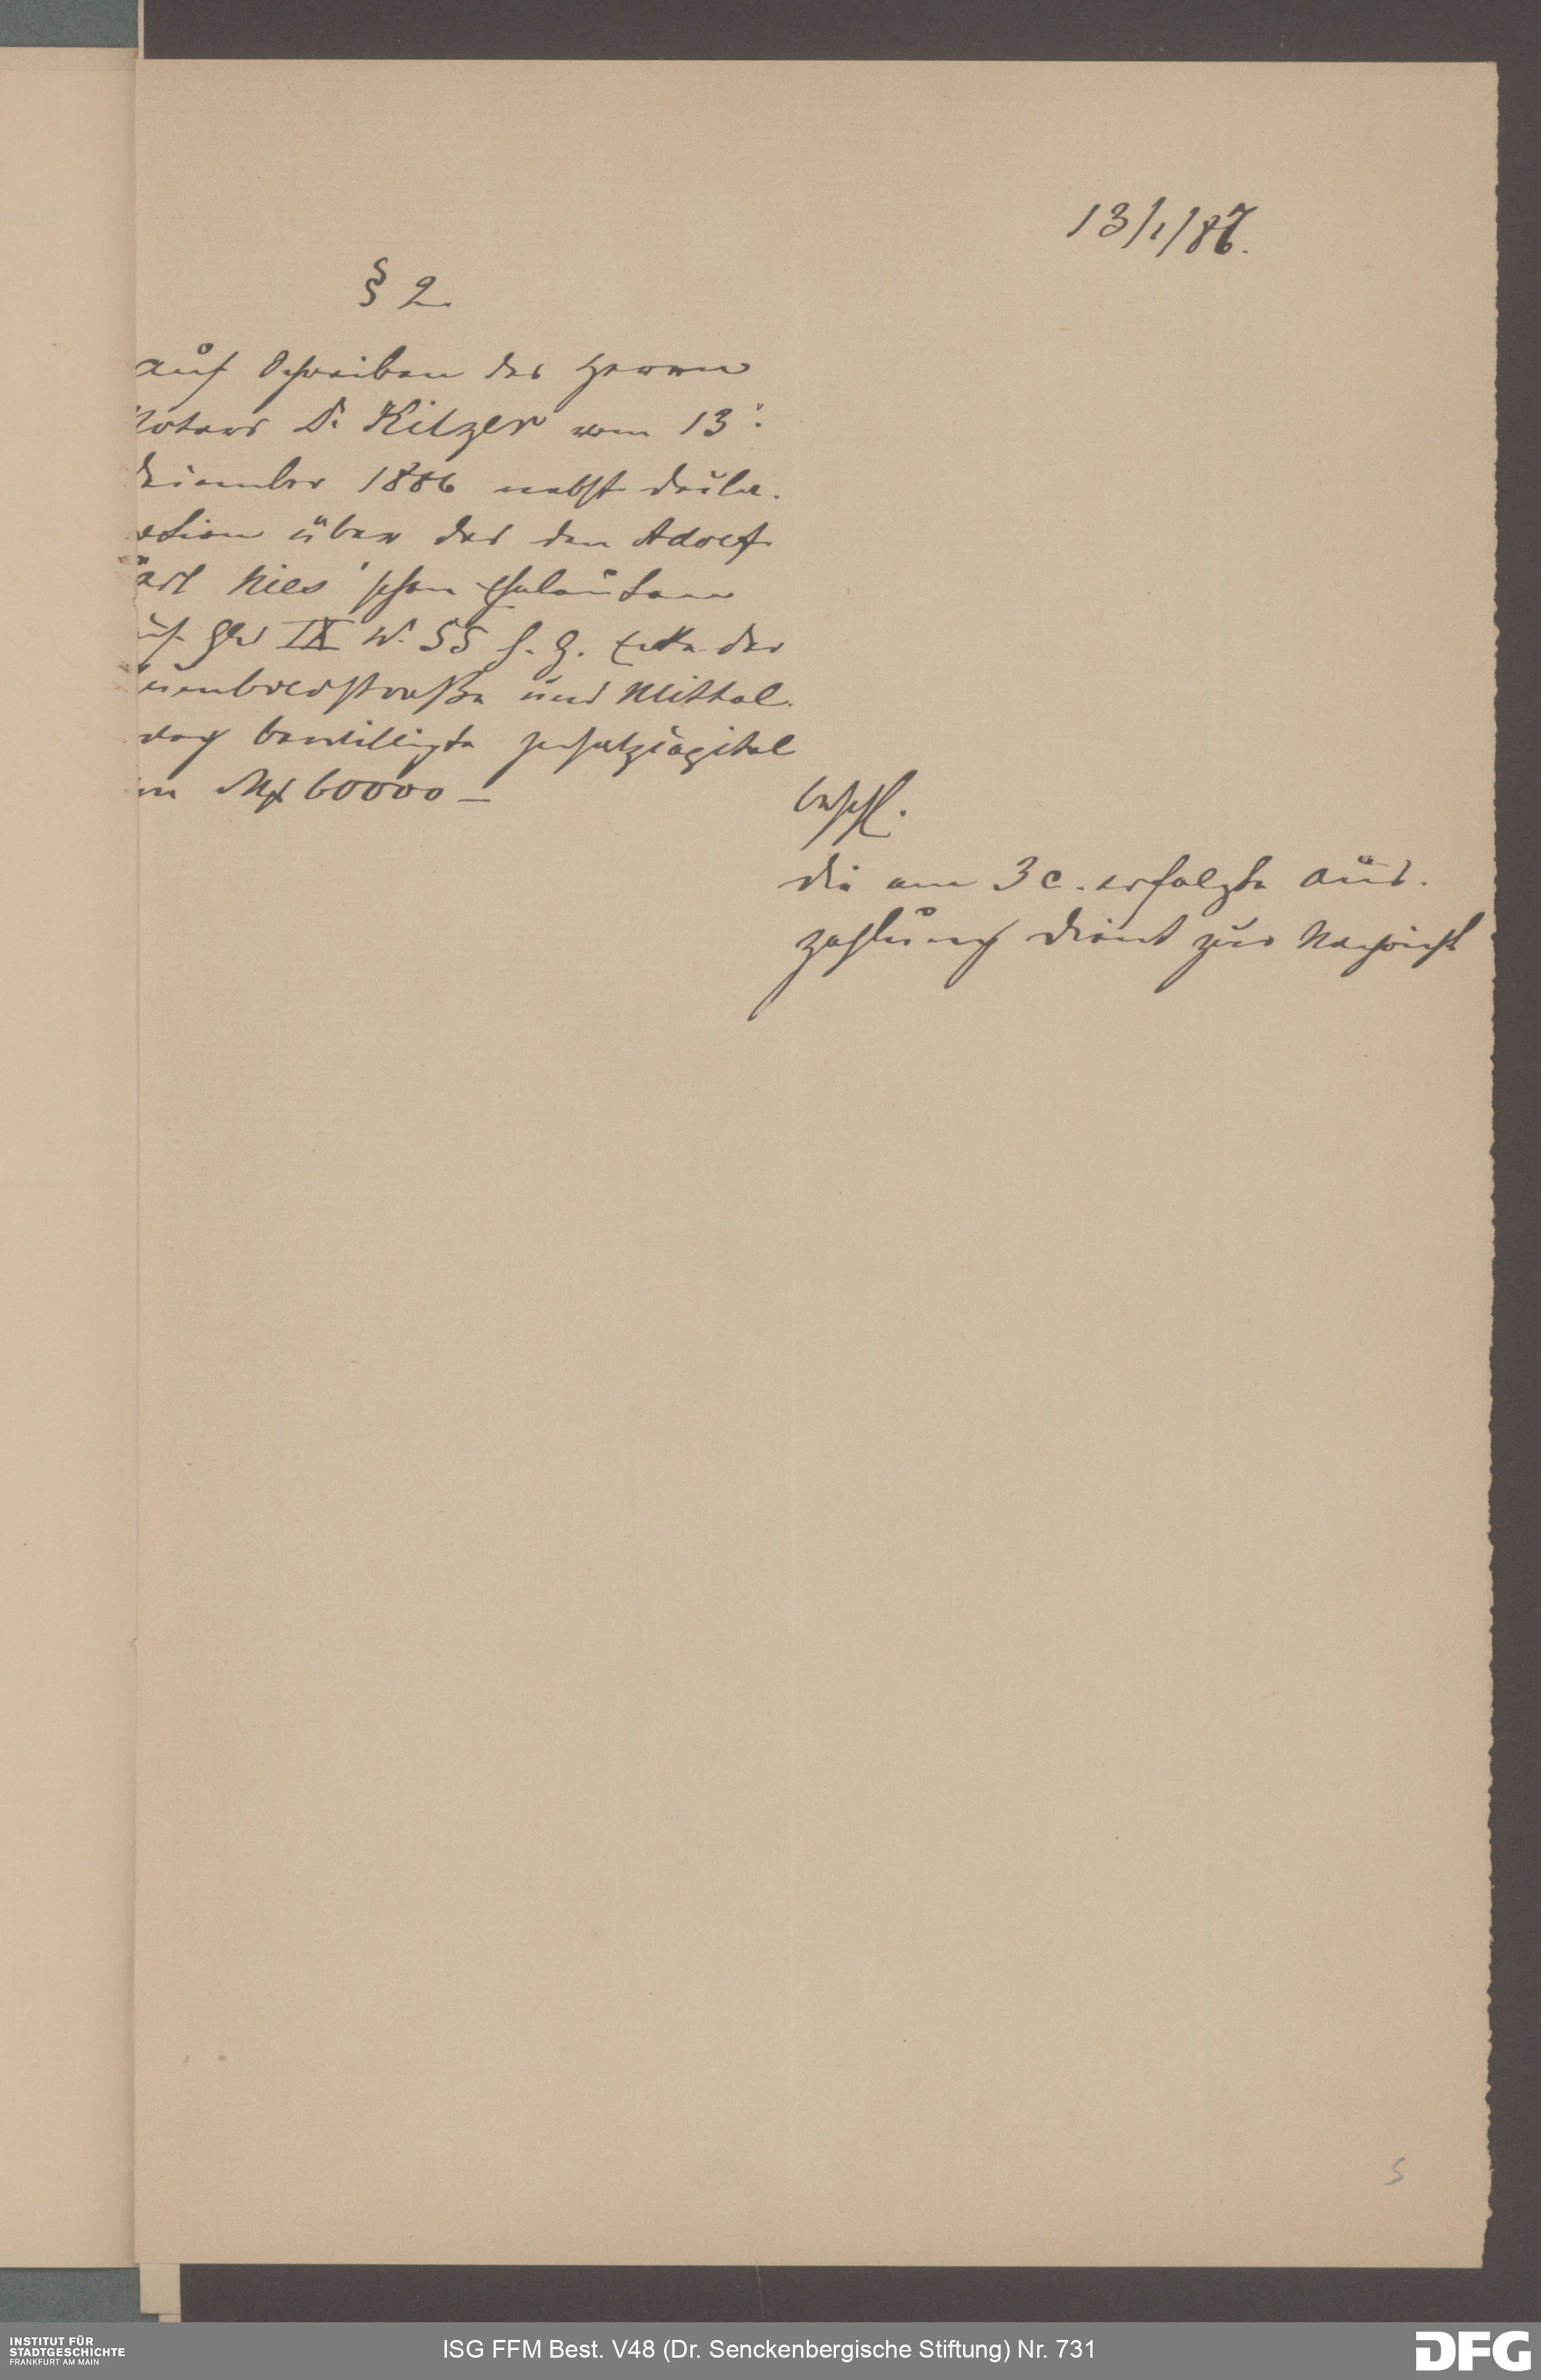 13/1/87.
§ 2.
auf Schreiben des Herrn
Notars Dr. Kitzer vom 13.
Dezember 1886 nebst
über das den Adolf
Nies'schen Eheleuten
IX N. 55 Ecke der
und Mittel-
weg bewilligte
60000 –
beschl.
die am 3 c. erfolgte Aus-
zahlung dient zur Nachricht
5
INSTITUT FÜR
STADTGESCHICHTE
FRANKFURT AM MAIN
ISG FFM Best. V48 (Dr. Senckenbergische Stiftung) Nr. 731
DFG